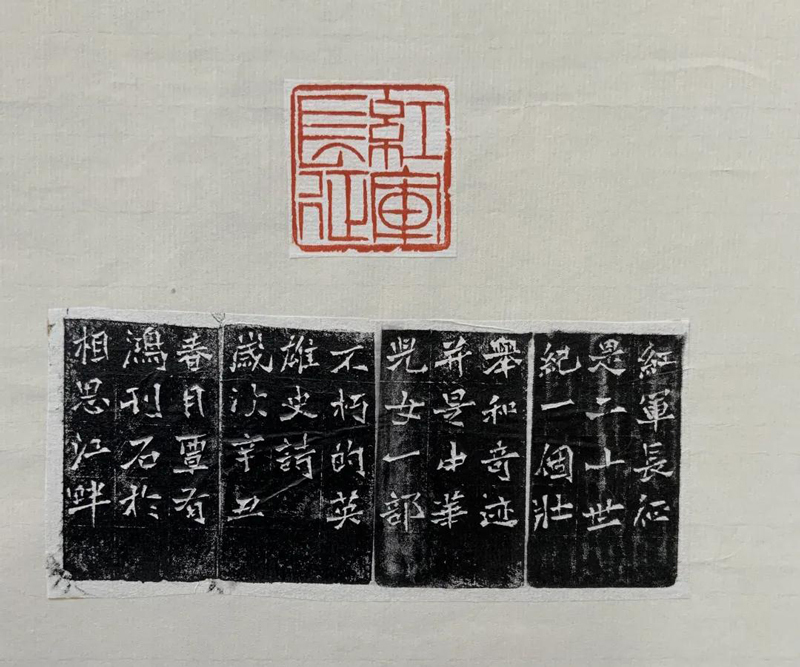 紅軍
長征
紅軍長征
是二十世
紀一個壯
舉和奇迹
并是中華
兒女一部
不朽的英
雄史詩
歲次辛丑
春月覃有
鴻刊石於
相思江畔